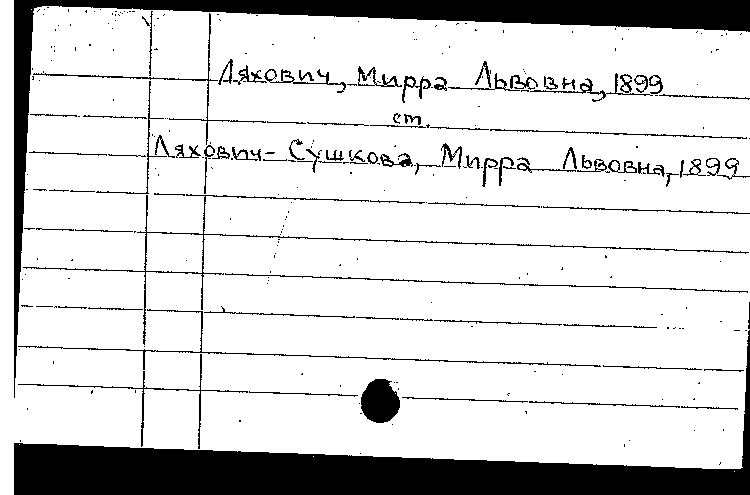 Ляхович, Мирра Львовна, 1899
ст.
Ляхович-Сушкова, Мирра Львовна, 1899